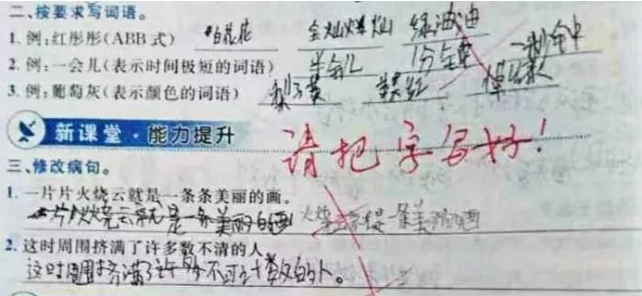 二、按要求写词语。
1. 例:红彤彤(ABB式) 白花花 金灿灿 绿油油
2. 例:一会儿(表示时间极短的词语) 半会儿 1分钟 一秒钟
3. 例:葡萄灰(表示颜色的词语) 梨黄 枣红
新课堂·能力提升
请把字写好!
三、修改病句。
1. 一片片火烧云就是一条条美丽的画。
一片火烧云就是一条美丽的画 火烧云就是一条美丽的画
2. 这时周围挤满了许多数不清的人。
这时周围挤满了许多不可计数的人。